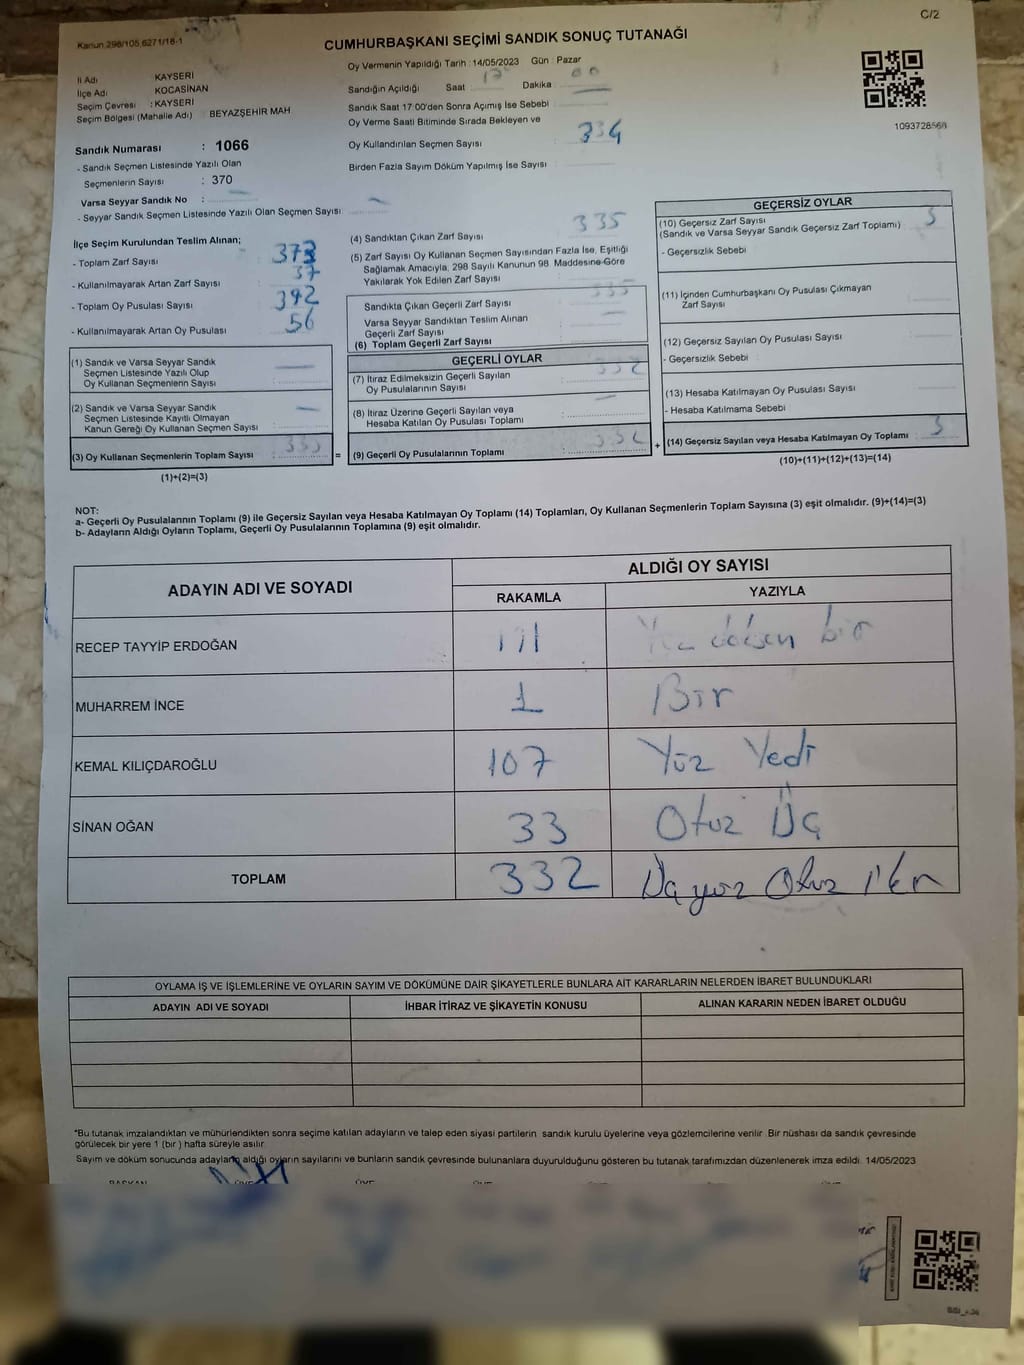 C/2
Kanun 298/105,6271/18-1
CUMHURBAŞKANI SEÇİMİ SANDIK SONUÇ TUTANAĞI
İli Adı KAYSERİ
İlçe Adı KOCASİNAN
Seçim Çevresi : KAYSERİ
Seçim Bölgesi (Mahalle Adı) BEYAZŞEHİR MAH
Sandık Numarası : 1066
- Sandık Seçmen Listesinde Yazılı Olan
Seçmenlerin Sayısı : 370
Varsa Seyyar Sandık No :
- Seyyar Sandık Seçmen Listesinde Yazılı Olan Seçmen Sayısı
Oy Vermenin Yapıldığı Tarih : 14/05/2023 Gün : Pazar
Sandığın Açıldığı Saat : 17 Dakika : 00
Sandık Saat 17:00'den Sonra Açımış İse Sebebi :
Oy Verme Saati Bitiminde Sırada Bekleyen ve
Oy Kullandırılan Seçmen Sayısı : 334
Birden Fazla Sayım Döküm Yapılmış İse Sayısı
1093728568
İlçe Seçim Kurulundan Teslim Alınan;
- Toplam Zarf Sayısı : 373
- Kullanılmayarak Artan Zarf Sayısı : 37
- Toplam Oy Pusulası Sayısı : 392
- Kullanılmayarak Artan Oy Pusulası : 56
(1) Sandık ve Varsa Seyyar Sandık
Seçmen Listesinde Yazılı Olup
Oy Kullanan Seçmenlerin Sayısı
(2) Sandık ve Varsa Seyyar Sandık
Seçmen Listesinde Kayıtlı Olmayan
Kanun Gereği Oy Kullanan Seçmen Sayısı
(3) Oy Kullanan Seçmenlerin Toplam Sayısı : 335
(1)+(2)=(3)
=
(4) Sandıktan Çıkan Zarf Sayısı 335
(5) Zarf Sayısı Oy Kullanan Seçmen Sayısından Fazla İse, Eşitliği
Sağlamak Amacıyla, 298 Sayılı Kanunun 98. Maddesine Göre
Yakılarak Yok Edilen Zarf Sayısı
Sandıkta Çıkan Geçerli Zarf Sayısı 335
Varsa Seyyar Sandıktan Teslim Alınan
Geçerli Zarf Sayısı
(6) Toplam Geçerli Zarf Sayısı
GEÇERLİ OYLAR
(7) İtiraz Edilmeksizin Geçerli Sayılan
Oy Pusulalarının Sayısı : 332
(8) İtiraz Üzerine Geçerli Sayılan veya
Hesaba Katılan Oy Pusulası Toplamı
(9) Geçerli Oy Pusulalarının Toplamı : 332
+
GEÇERSİZ OYLAR
(10) Geçersiz Zarf Sayısı 3
(Sandık ve Varsa Seyyar Sandık Geçersiz Zarf Toplamı)
- Geçersizlik Sebebi :
(11) İçinden Cumhurbaşkanı Oy Pusulası Çıkmayan
Zarf Sayısı
(12) Geçersiz Sayılan Oy Pusulası Sayısı :
- Geçersizlik Sebebi :
(13) Hesaba Katılmayan Oy Pusulası Sayısı
- Hesaba Katılmama Sebebi
(14) Geçersiz Sayılan veya Hesaba Katılmayan Oy Toplamı : 3
(10)+(11)+(12)+(13)=(14)
NOT:
a- Geçerli Oy Pusulalarının Toplamı (9) ile Geçersiz Sayılan veya Hesaba Katılmayan Oy Toplamı (14) Toplamları, Oy Kullanan Seçmenlerin Toplam Sayısına (3) eşit olmalıdır. (9)+(14)=(3)
b- Adayların Aldığı Oyların Toplamı, Geçerli Oy Pusulalarının Toplamına (9) eşit olmalıdır.
ADAYIN ADI VE SOYADI ALDIĞI OY SAYISI
RAKAMLA YAZIYLA
RECEP TAYYİP ERDOĞAN bir
MUHARREM İNCE 1 Bir
KEMAL KILIÇDAROĞLU 107 Yüz Yedi
SİNAN OĞAN 33 Otuz Üç
TOPLAM 332 Üçyüz Otuz İki
OYLAMA İŞ VE İŞLEMLERİNE VE OYLARIN SAYIM VE DÖKÜMÜNE DAİR ŞİKAYETLERLE BUNLARA AİT KARARLARIN NELERDEN İBARET BULUNDUKLARI
ADAYIN ADI VE SOYADI İHBAR İTİRAZ VE ŞİKAYETİN KONUSU ALINAN KARARIN NEDEN İBARET OLDUĞU
*Bu tutanak imzalandıktan ve mühürlendikten sonra seçime katılan adayların ve talep eden siyasi partilerin sandık kurulu üyelerine veya gözlemcilerine verilir. Bir nüshası da sandık çevresinde
görülecek bir yere 1 (bir) hafta süreyle asılır.
Sayım ve döküm sonucunda adayların aldığı oyların sayılarını ve bunların sandık çevresinde bulunanlara duyurulduğunu gösteren bu tutanak tarafımızdan düzenlenerek imza edildi. 14/05/2023